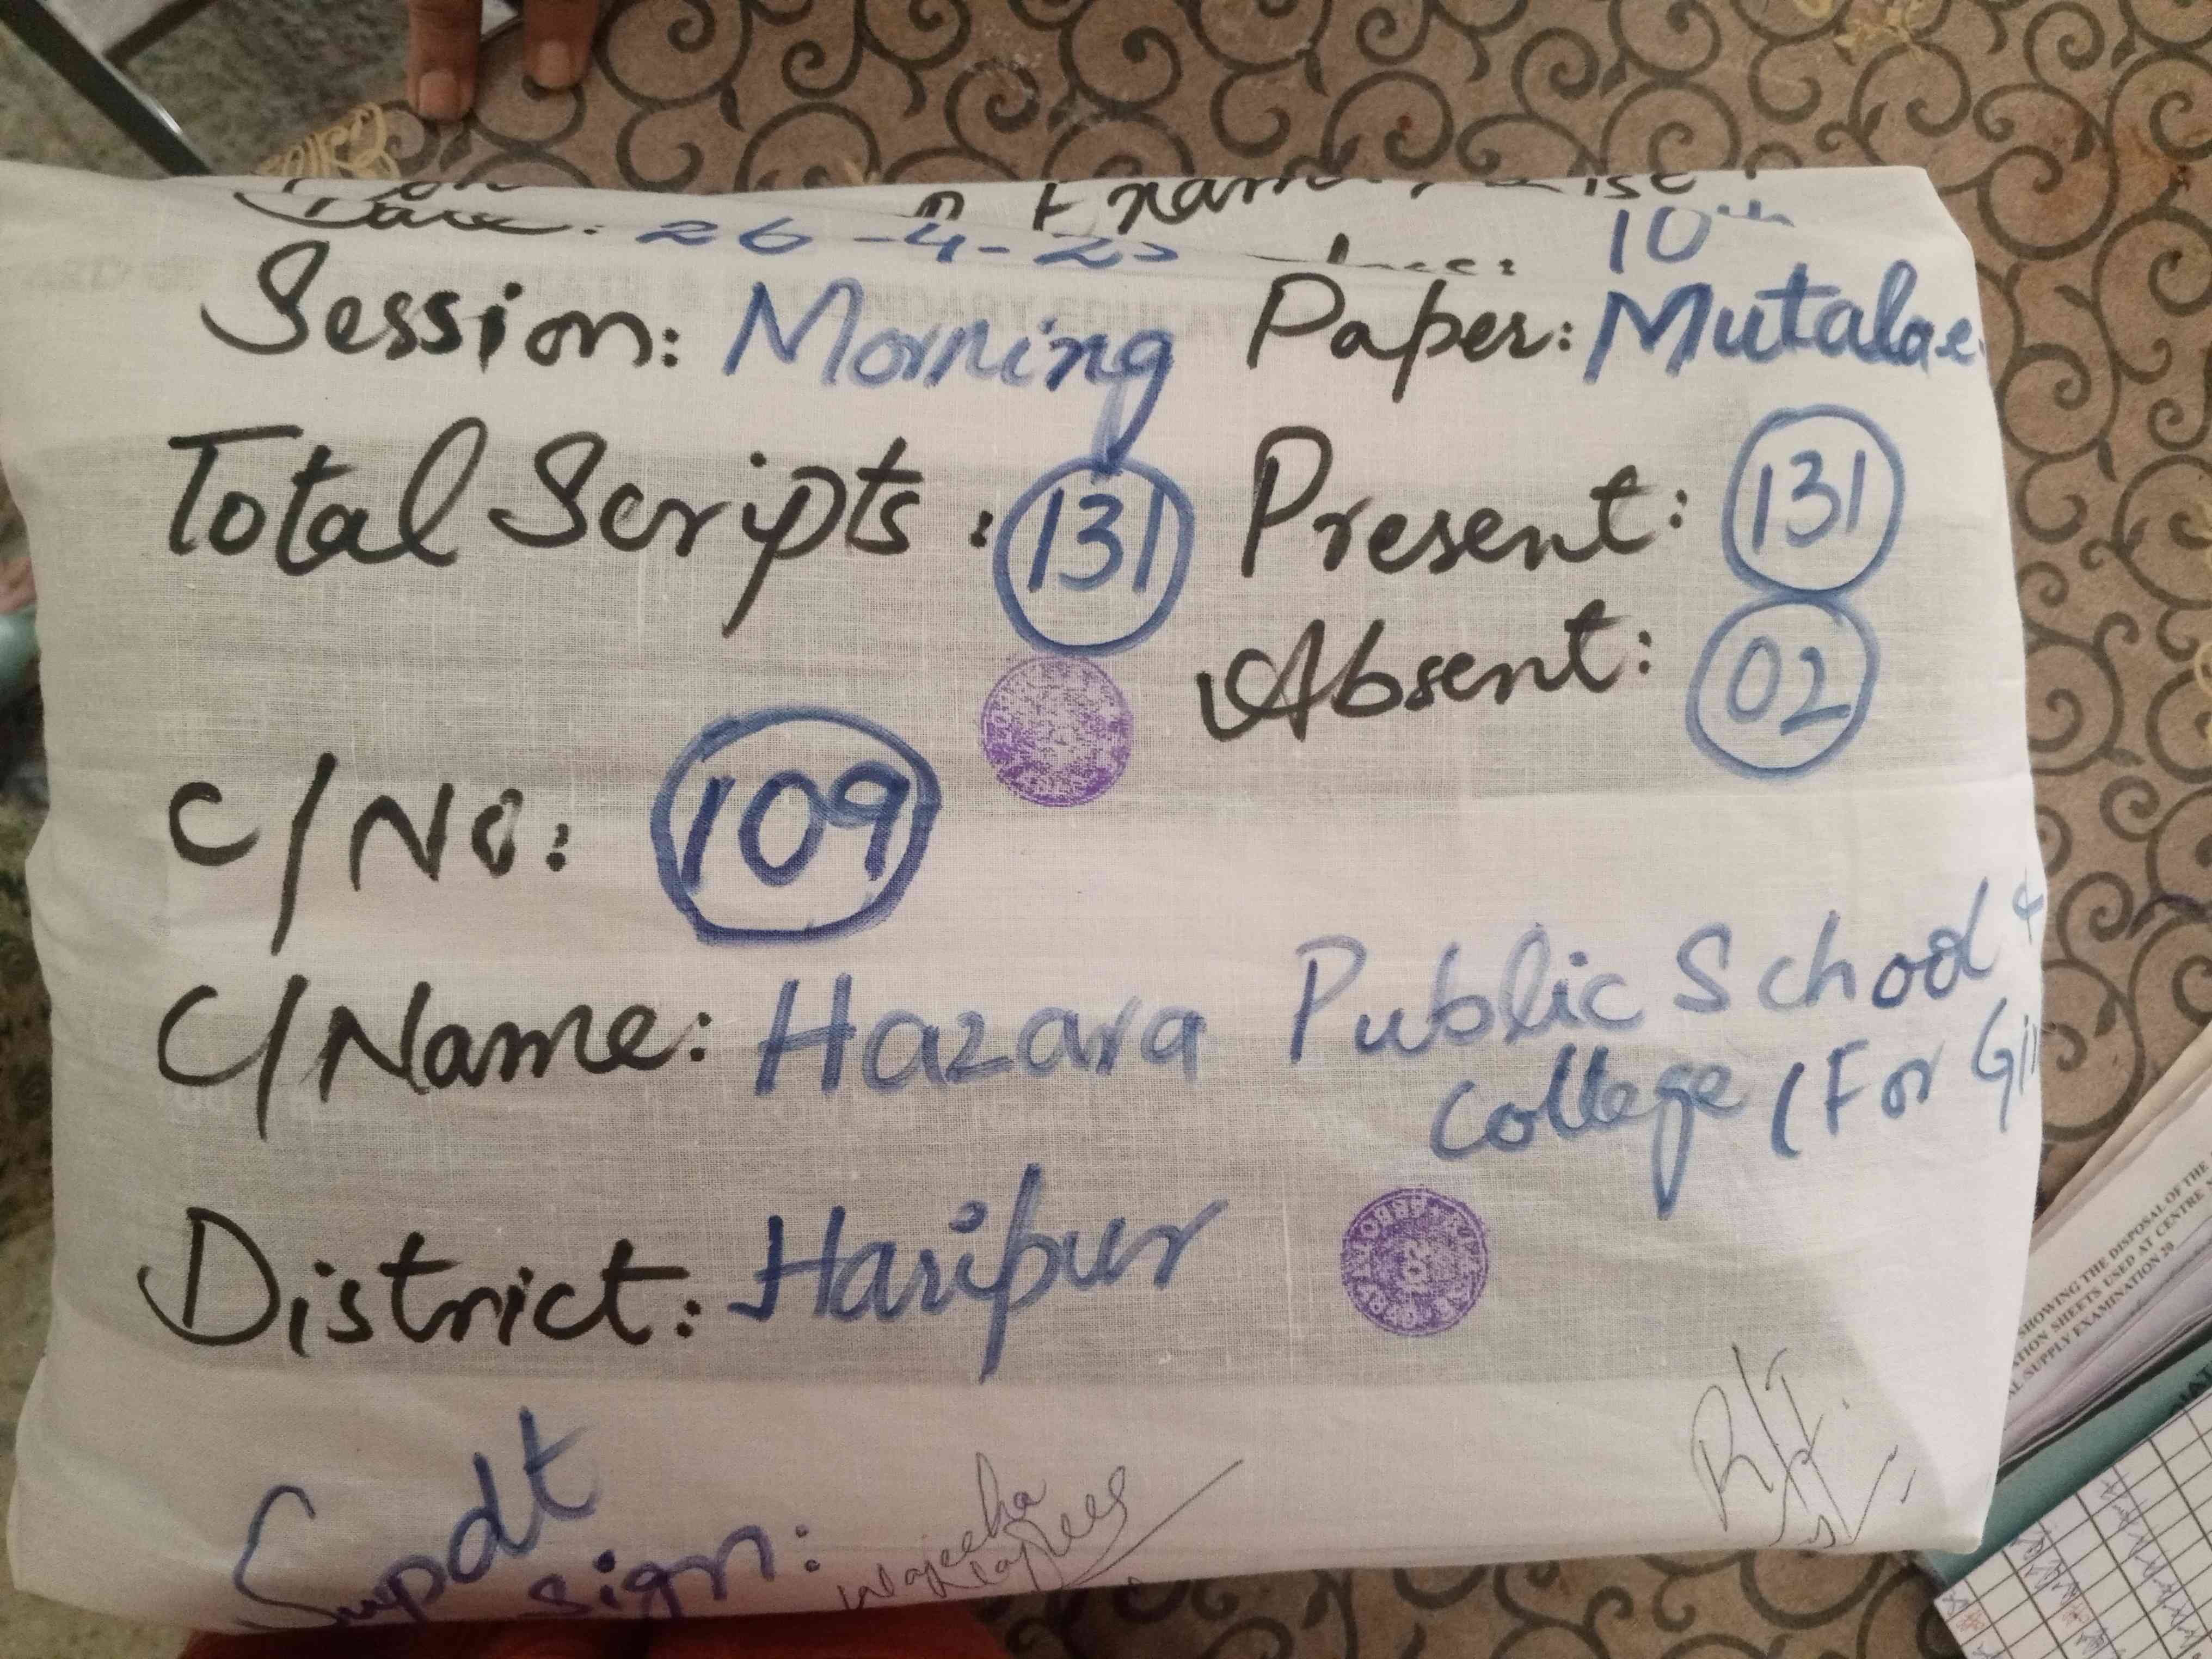 Date: 26-4-2
10th
Session: Morning Paper: Mutalae
Total Scripts: 131 Present: 131
Absent: 02
C/No: 109
C/Name: Hazara Public School &
College (For Gi
District: Haripur
R/I
Supdt
Sign: Wajeeha
SHOWING THE DISPOSAL OF THE
ATION SHEETS USED AT CENTRE
AL/SUPPLY EXAMINATION 20